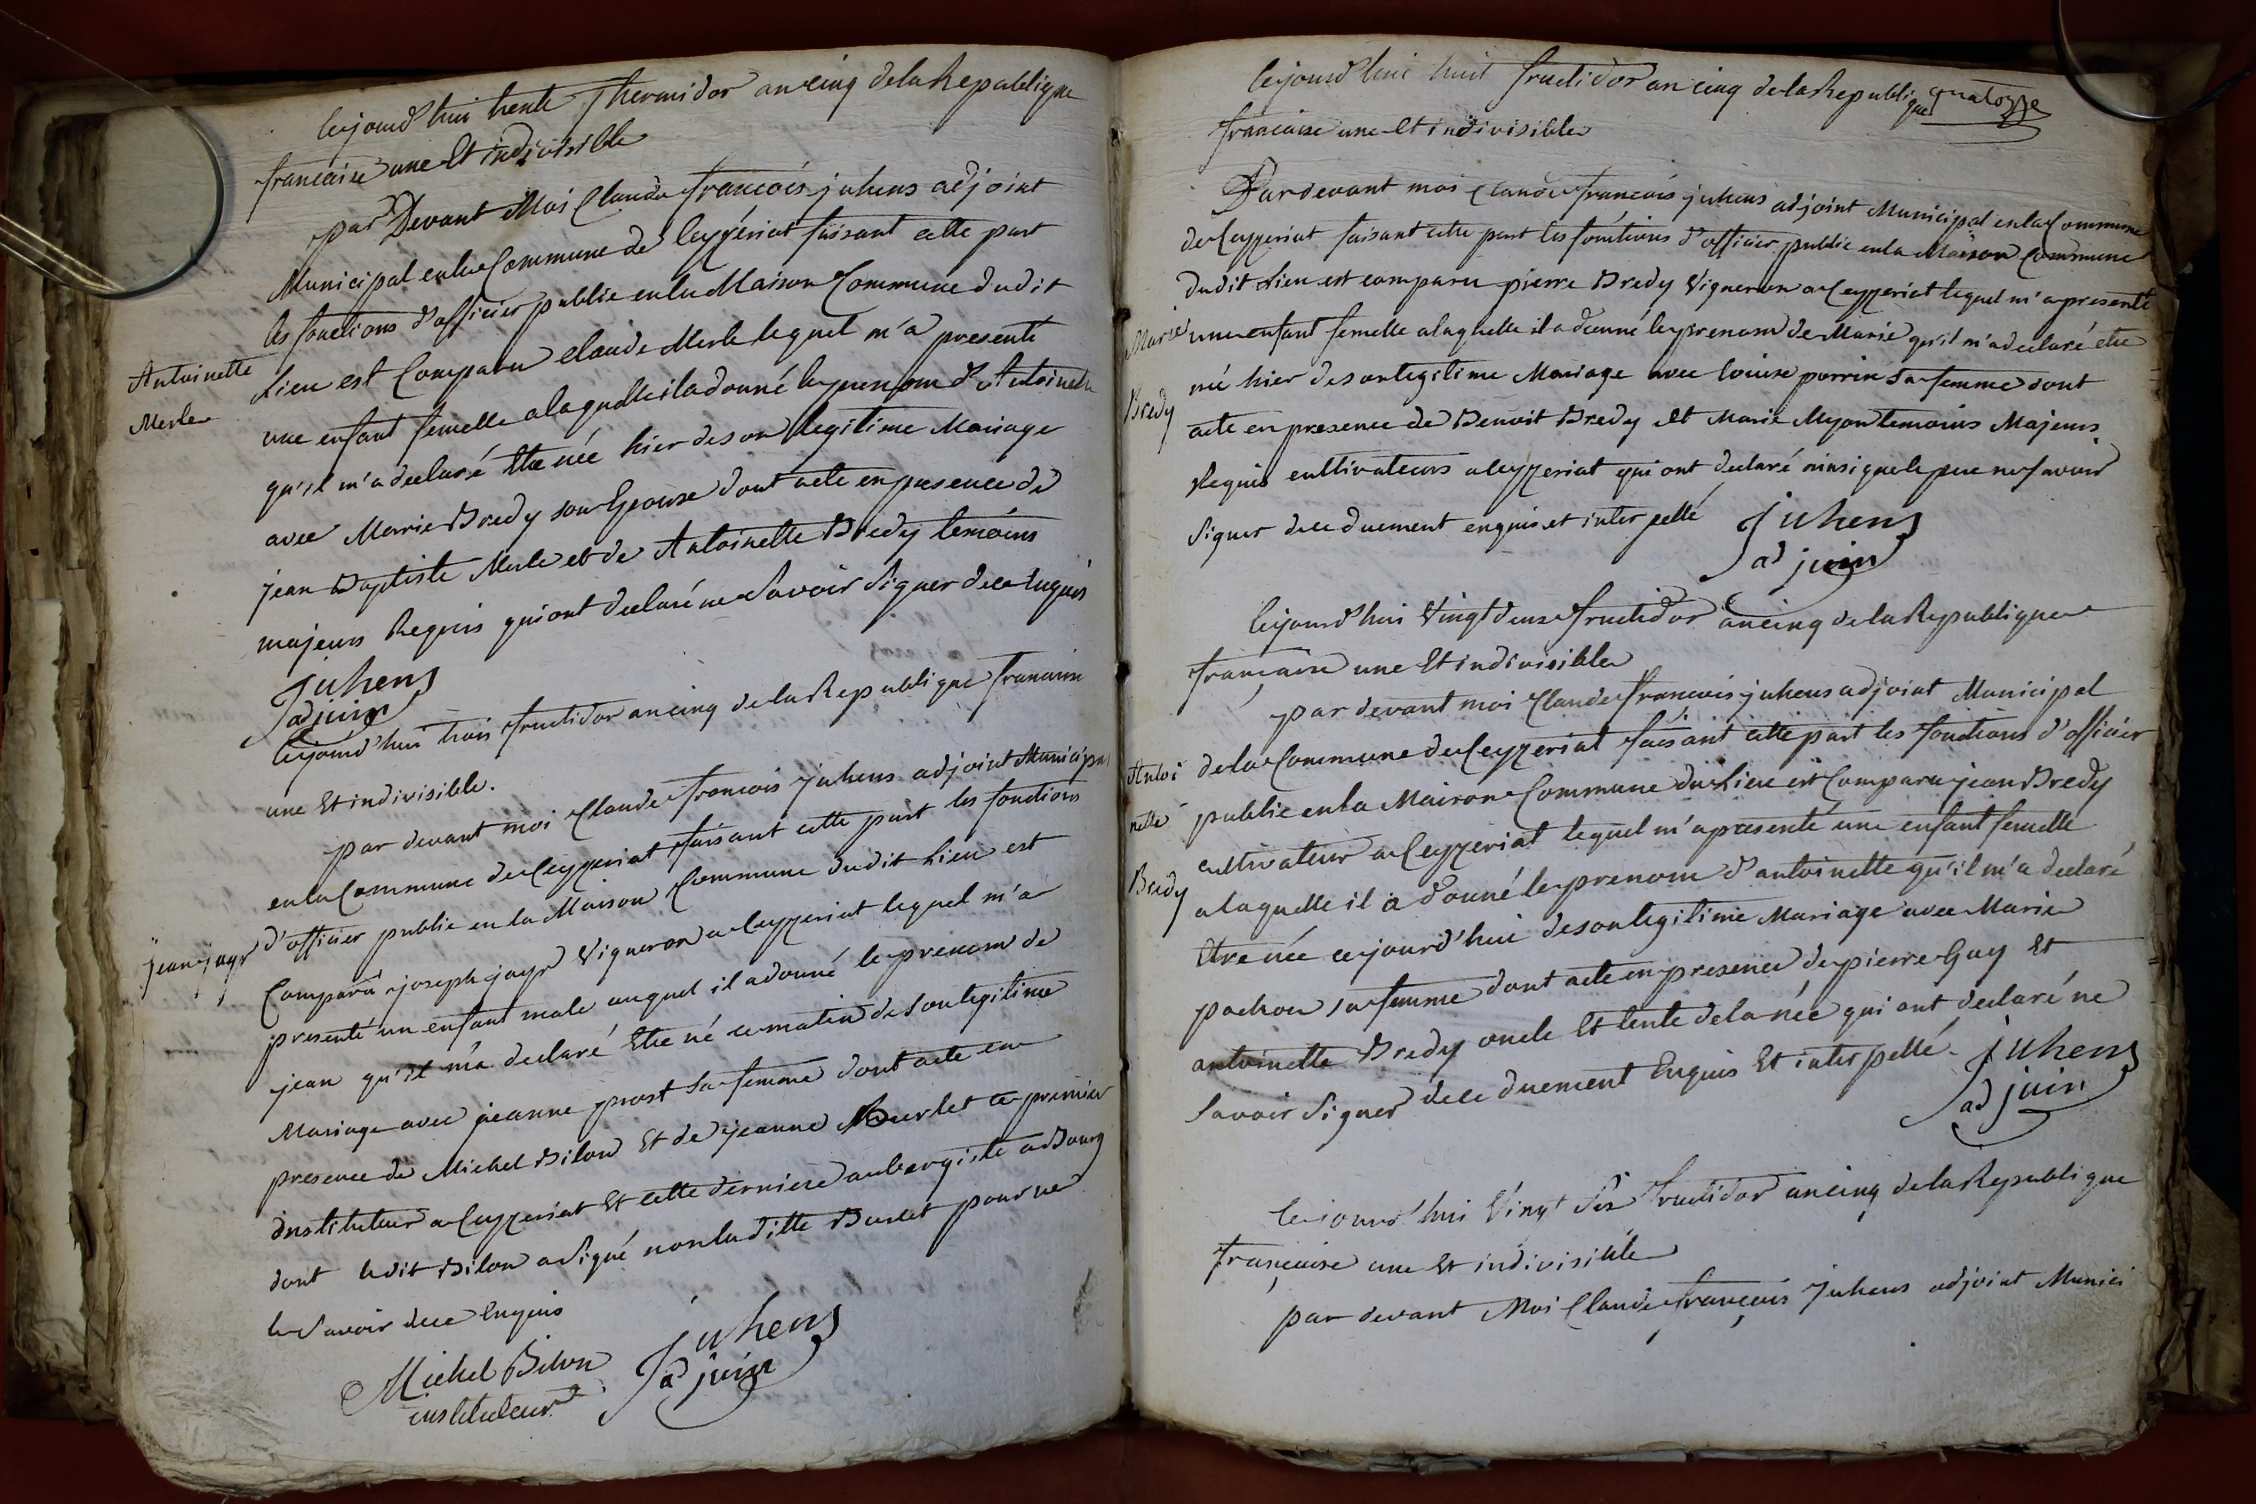 Cejourd'hui trente Thermidor an cinq de la Republique
francaise une Et indivisible
par Devant Moi Claude francois juhens adjoint
Municipal en la Commune de Ceyzériat faisant cette part
les fonctions d'officier public en la Maison Commune dudit
Lieu est Comparu claude Merle lequel m'a presenté
Antoinette
Merle
une enfant femelle a laquelle il a donné le prenom d'Antoinette
qu'il m'a declaré Etre née hier de son legitime Mariage
avec Marie Bredy son Epouse dont acte en presence de
jean Baptiste Merle et de Antoinette Bredy temoins
majeurs Requis qui ont declaré ne Savoir Signer de ce Enquis
Juhens
adjoin
Cejourd'hui trois fructidor an cinq de la Republique francaise
une Et indivisible.
par devant moi Claude francois juhens adjoint Municipal
en la Commune de Ceyzeriat faisant cette part les fonctions
d'officier public en la Maison Commune dudit Lieu est
jean jayr
Comparu joseph jayr Vigneron a Ceyzeriat lequel m'a
presenté un enfant male auquel il a donné le prenom de
jean qu'il m'a declaré Etre né ce matin de son legitime
Mariage avec jeanne prost Sa femme dont acte en
presence de Michel Bilon Et de jeanne Burlet ce premier
instituteur a Ceyzeriat Et cette derniere aubergiste a Bourg
dont ledit Bilon a Signé non laditte Burlet pour ne
le Savoir de ce Enquis
Michel Bilon
instituteur
Juhens
adjoin
quatorze
Cejourd'hui huit fructidor an cinq de la Republique
francaise une Et indivisible
Par devant moi Claude francois juhens adjoint Municipal en la Commune
de Ceyzeriat faisant cette part les fonctions d'officier public en la Maison Commune
dudit Lieu est comparu pierre Bredy Vigneron a Ceyzeriat lequel m'a presenté
Marie
Bredy
une enfant femelle a laquelle il a donné le prenom de Marie qu'il m'a declaré etre
né hier de son legitime Mariage avec louise perrin Sa femme dont
acte en presence de Benoit Bredy et Marie Myon temoins Majeurs
Requis cultivateurs a Ceyzeriat qui ont declaré ainsi que le pere ne Savoir
Signer de ce duement enquis et interpellé
Juhens
adjoin
Cejourd'hui Vingt deux fructidor an cinq de la Republique
française une Et indivisible
par devant moi Claude francois juhens adjoint Municipal
de la Commune de Ceyzeriat faisant cette part les fonctions d'officier
Antoi
nette
Bredy
public en la Maison Commune du Lieu est Comparu jean Bredy
cultivateur a Ceyzeriat lequel m'a presenté une enfant femelle
a laquelle il a donné le prenom d'antoinette qu'il m'a declaré
Etre née cejourd'hui de son legitime Mariage avec Marie
pochon sa femme dont acte en presence de pierre Guy Et
antoinette Bredy oncle Et tente de la née qui ont declaré ne
Savoir Signer de ce duement Enquis Et interpellé.
Juhens
adjoin
Cejourd'hui Vingt Six fructidor an cinq de la Republique
française une Et indivisible
par devant Moi Claude françois Juhens adjoint Munici